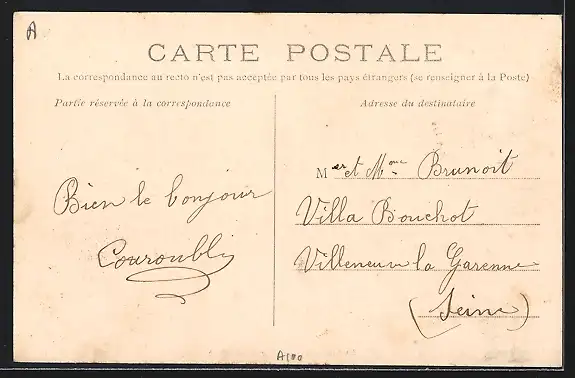 A
CARTE POSTALE
La correspondance au recto n'est pas acceptée par tous les pays étrangers (se renseigner à la Poste)
Partie réservée à la correspondance
Adresse du destinataire
Bien le bonjour
Couroubli
Mr et Mme Brunoit
Villa Bouchot
Villeneuve la Garenne
(Seine)